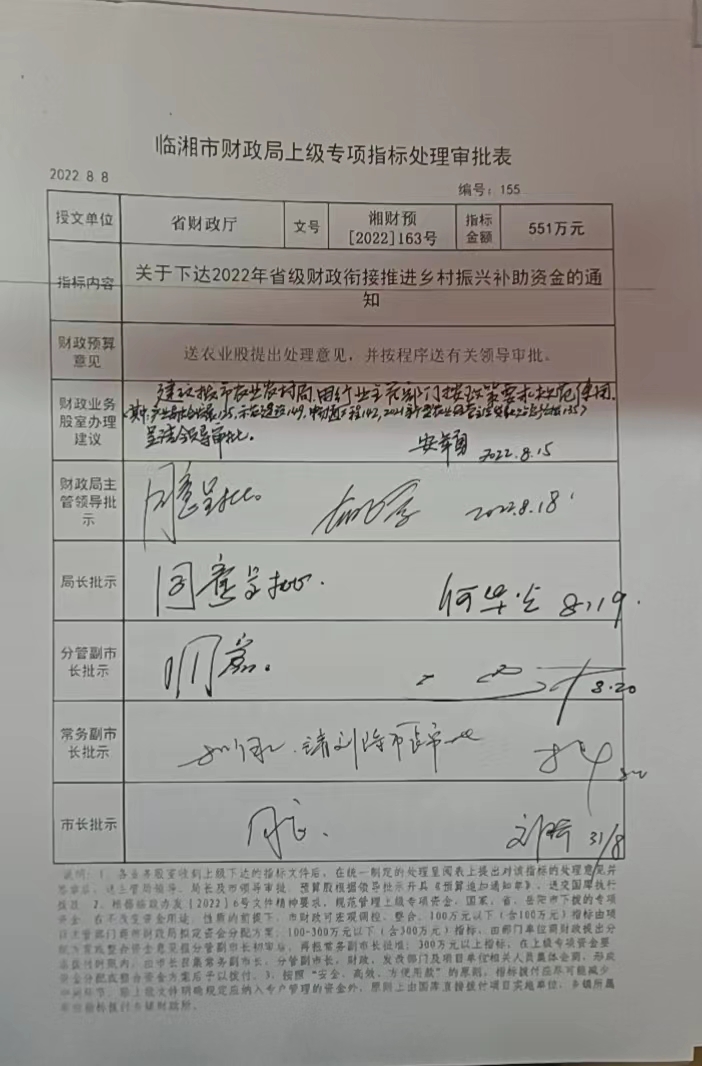 临湘市财政局上级专项指标处理审批表
2022 8 8
编号：155
授文单位 省财政厅 文号 湘财预[2022]163号 指标金额 551万元
指标内容 关于下达2022年省级财政衔接推进乡村振兴补助资金的通知
财政预算意见 送农业股提出处理意见，并按程序送有关领导审批。
财政业务股室办理建议
建议拨市农业农村局,由行业主管部门按政策要求规范使用
呈请领导审批。
2022.8.15
财政局主管领导批示 同意呈批。 2022.8.18
局长批示 同意呈批. 8,19.
分管副市长批示 同意。 8.20
常务副市长批示
市长批示 同意. 31/8
说明：1、各业务股室收到上级下达的指标文件后，在统一制定的处理呈阅表上提出对该指标的处理意见并
签章后，送主管局领导、局长及市领导审批，预算股根据领导批示开具《预算追加通知单》，送交国库执行
拨款 2、根据临政办发[2022]6号文件精神要求，规范管理上级专项资金，国家、省、岳阳市下拨的专项
资金，在不改变资金用途、性质的前提下，市财政可宏观调控、整合。100万元以下（含100万元）指标由项
目主管部门商财政局拟定资金分配方案；100-300万元以下（含300万元）指标，由部门单位商财政提出分
配方案或整合资金意见报分管副市长初审后，再报常务副市长批准；300万元以上指标，在上级专项资金要
求拨付时限内，由市长召集常务副市长、分管副市长、财政、发改部门及项目单位相关人员集体会商，形成
资金分配或整合资金方案后予以拨付。3、按照“安全、高效、方便用款”的原则，指标拨付应尽可能减少
中间环节，除上级文件明确规定应纳入专户管理的资金外，原则上由国库直接拨付项目实施单位，乡镇所属
单位指标拨付乡镇财政所。